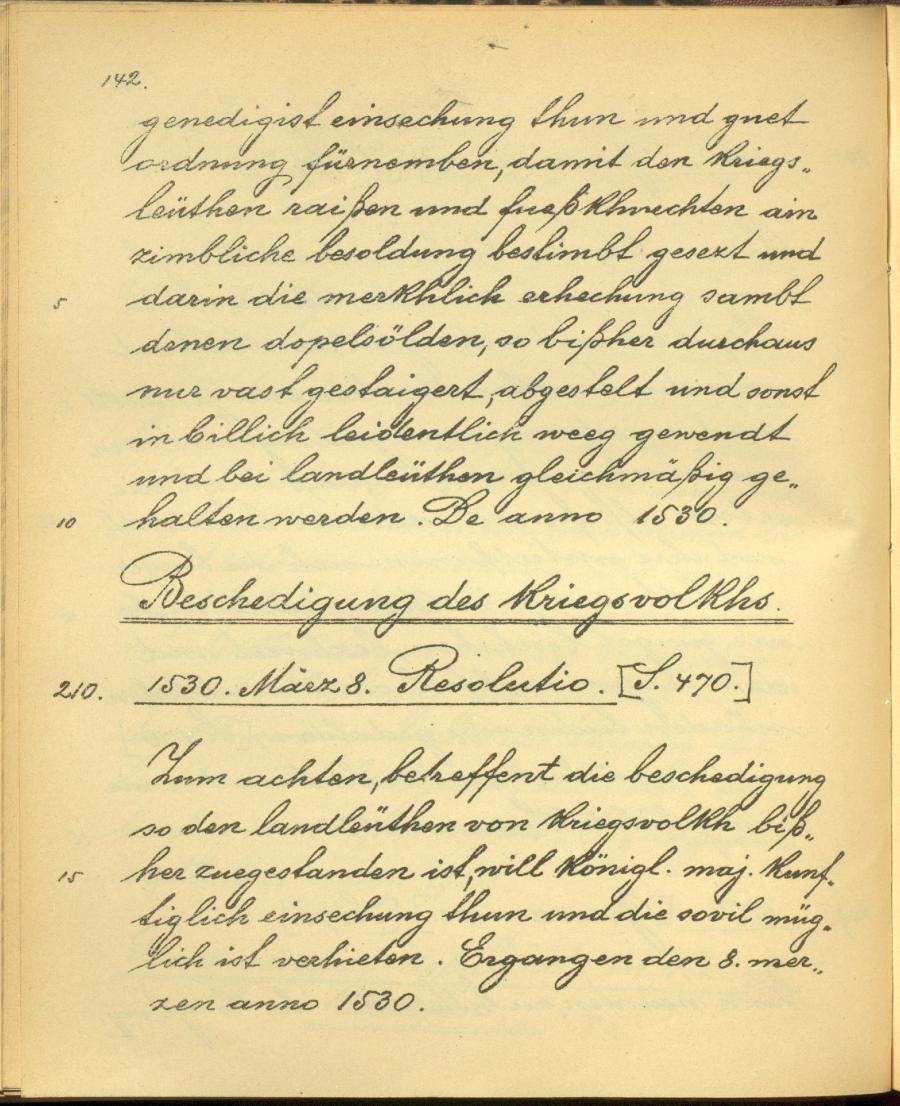 142.
genedigist einsechung thun und guet
ordnung fürnemben, damit den kriegs„
leüthen raißen und fueßkhnechten ain
zimbliche besoldung bestimbt gesezt und
5 darin die merkhlich erhechung sambt
denen dopelsölden, so bißher durchaus
nur vast gestaigert, abgestelt und sonst
in billich leidentlich weeg gewendt
und bei landleüthen gleichmäßig ge„
10 halten werden. De anno 1530.
Beschedigung des kriegsvolkhs.
210. 1530. März 8. Resolutio. [S. 470.]
Zum achten, betreffent die beschedigung
so den landleüthen von kriegsvolkh biß„
15 her zuegestanden ist, will königl. maj. kunf„
tiglich einsechung thun und die sovil müg„
lich ist verhieten. Ergangen den 8. mer„
zen anno 1530.